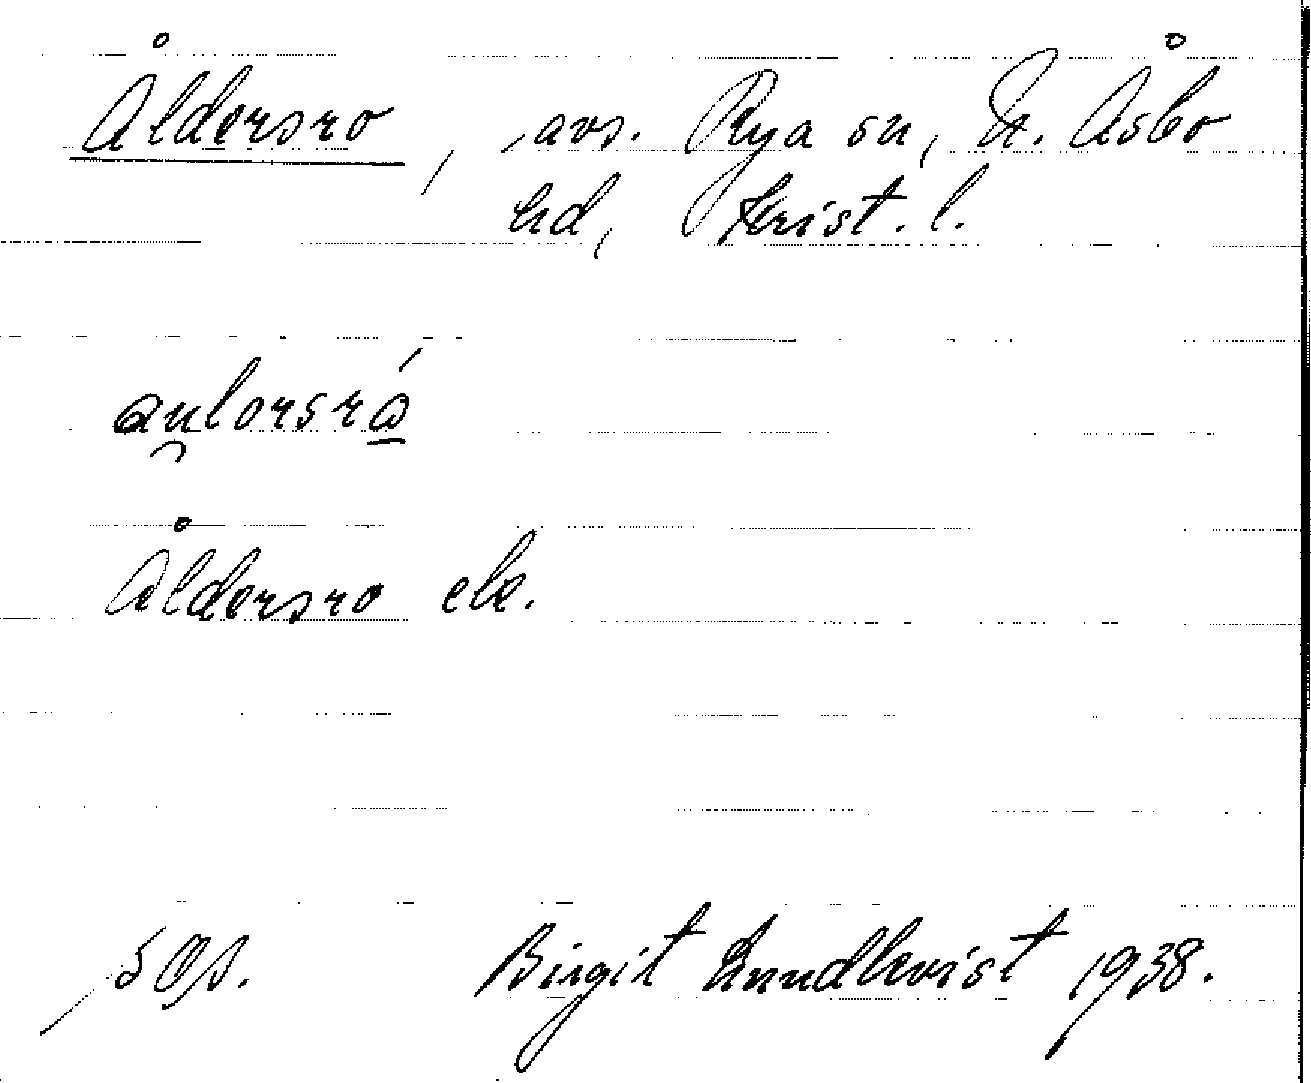 Åldersro, avs. Rya sn, N. Åsbo
hd, Krist. l.
au̯lorsrǻ
Åldersro ek.
Birgit Lundkvist 1938.